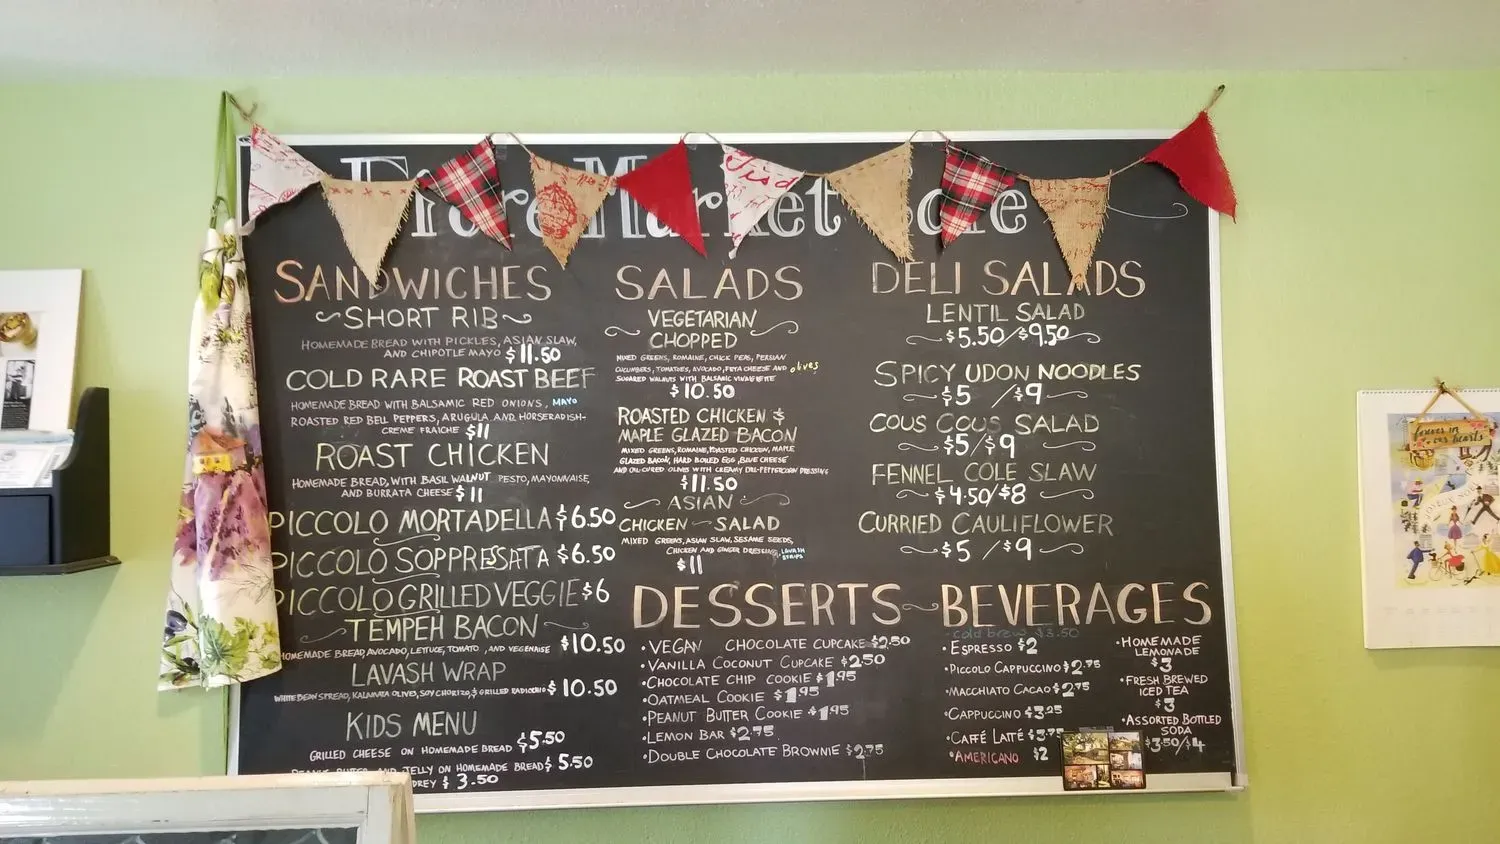 Market
SANDWICHES
SHORT RIB
HOMEMADE BREAD WITH PICKLES, ASIAN SLAW,
AND CHIPOTLE MAYO $11.50
COLD RARE ROAST BEEF
HOMEMADE BREAD WITH BALSAMIC RED ONIONS, MAYO
ROASTED RED BELL PEPPERS, ARUGULA AND HORSERADISH-
CREME FRAICHE $11
ROAST CHICKEN
HOMEMADE BREAD, WITH BASIL WALNUT PESTO, MAYONNAISE,
AND BURRATA CHEESE $11
PICCOLO MORTADELLA $6.50
PICCOLO SOPPRESSATA $6.50
PICCOLO GRILLED VEGGIE $6
TEMPEH BACON
HOMEMADE BREAD, AVOCADO, LETTUCE, TOMATO, AND VEGENAISE $10.50
LAVASH WRAP
WHITE BEAN SPREAD, KALAMATA OLIVES, SOY CHORIZO, & GRILLED RADICCHIO $10.50
KIDS MENU
GRILLED CHEESE ON HOMEMADE BREAD $5.50
JELLY ON HOMEMADE BREAD $5.50
$3.50
SALADS
VEGETARIAN
CHOPPED
MIXED GREENS, ROMAINE, CHICK PEAS, PERSIAN
CUCUMBERS, TOMATOES, AVOCADO, FETA CHEESE AND olives
SUGARED WALNUTS WITH BALSAMIC VINAIGRETTE
$10.50
ROASTED CHICKEN &
MAPLE GLAZED BACON
MIXED GREENS, ROMAINE, ROASTED CHICKEN, MAPLE
GLAZED BACON, HARD BOILED EGG, BLUE CHEESE
AND OIL-CURED OLIVES WITH CREAMY DILL-PEPPERCORN DRESSING
$11.50
ASIAN
CHICKEN SALAD
MIXED GREENS, ASIAN SLAW, SESAME SEEDS,
CHICKEN AND GINGER DRESSING, LAVASH
STRIPS
$11
DELI SALADS
LENTIL SALAD
$5.50/$9.50
SPICY UDON NOODLES
$5 / $9
COUS COUS SALAD
$5/$9
FENNEL COLE SLAW
$4.50/$8
CURRIED CAULIFLOWER
$5 / $9
DESSERTS
•VEGAN CHOCOLATE CUPCAKE $2.50
•VANILLA COCONUT CUPCAKE $2.50
•CHOCOLATE CHIP COOKIE $1.95
•OATMEAL COOKIE $1.95
•PEANUT BUTTER COOKIE $1.95
•LEMON BAR $2.75
•DOUBLE CHOCOLATE BROWNIE $2.75
BEVERAGES
•cold brew $3.50
•ESPRESSO $2
•PICCOLO CAPPUCCINO $2.75
•MACCHIATO CACAO $2.75
•CAPPUCCINO $3.25
•CAFFÉ LATTÉ $3.75
•AMERICANO $2
•HOMEMADE
LEMONADE
$3
•FRESH BREWED
ICED TEA
$3
•ASSORTED BOTTLED
SODA
$3.50/$4
forever in
our hearts